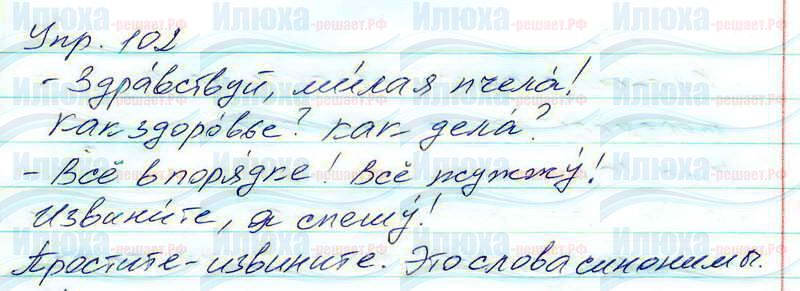 Упр. 102
- Здра́вствуй, ми́лая пчела́!
Как здоро́вье? Как - дела́?
- Всё в поря́дке! Всё жужжу́!
Извини́те, я спешу́!
Простите - извините. Это слова синонимы.